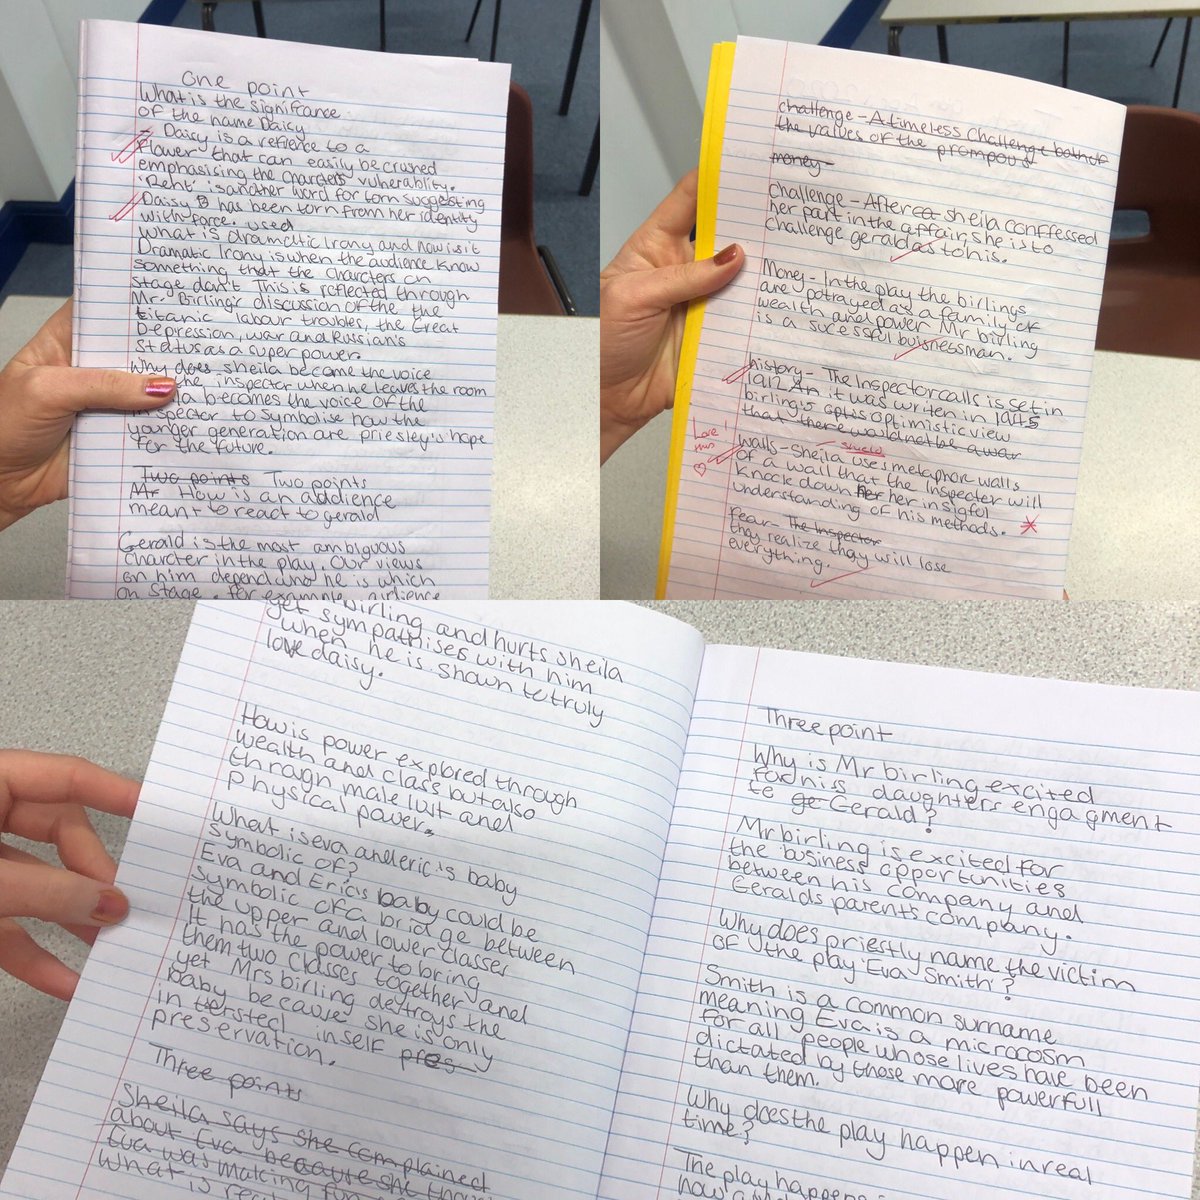 One point
What is the significance
of the name Daisy
- Daisy is a refrence to a
flower that can easily be crushed
emphasising the charcters vulnerablity.
'Rent' is another word for torn suggesting
Daisy has been torn from her identity
with force. used
What is dramatic Irony and how is it
Dramatic Irony is when the audience know
something that the charcters on
stage don't This is reflected through
Mr. Birling's discussion of the the
titanic labour troubles, the Great
Depression, war and Russian's
status as a super power.
Why does sheila become the voice
the inspector when he leaves the room
becomes the voice of the
inspector to symbolise how the
younger generation are priesley's hope
for the future.
Two points Two points
Mr How is an addience
meant to react to gerald
Gerald is the most ambiguous
charcter in the play. Our views
on him depend who he is which
on stage. for example, audience
challenge - A timeless challenge both of
the values of the prompous
money -
challenge - After sheila conffessed
her part in the affair, she is to
challenge gerald as to his.
Money - In the play the birlings
are potrayed as a family of
wealth and power Mr birling
is a sucessful buisnessman.
history - The Inspector calls is set in
1912 it was writen in 1945
birling's optimistic view
that there would not be a war
Love
this
shield
walls - Sheila uses metaphor walls
of a wall that the Inspecter will
knock down her her insigful
understanding of his methods. *
fear - The Inspector
they realize thay will lose
everything.
birling and hurts sheila
yet sympathises with him
when he is shown to truly
love daisy.
How is power explored through
wealth and class but also
through male lust and
physical power.
What is eva and eric's baby
symbolic of?
Eva and Eric's baby could be
symbolic of a bridge between
the upper and lower classes
It has the power to bring
them two classes together and
yet Mrs birling detrays the
baby because she is only
in tersted inself pres
preservation.
Three points
Sheila says she complained
about Eva because she thought
Eva was making fun
what is
Three point
Why is Mr birling excited
for his daughters engagment
to ge Gerald?
Mr birling is excited for
the business opportunities
between his company and
Geralds parents company.
Why does priestly name the victim
of the play 'Eva Smith'?
Smith is a common surname
meaning Eva is a microcosm
for all people whose lives have been
dictated by those more powerfull
than them.
Why does the play happen in real
time?
The play happens